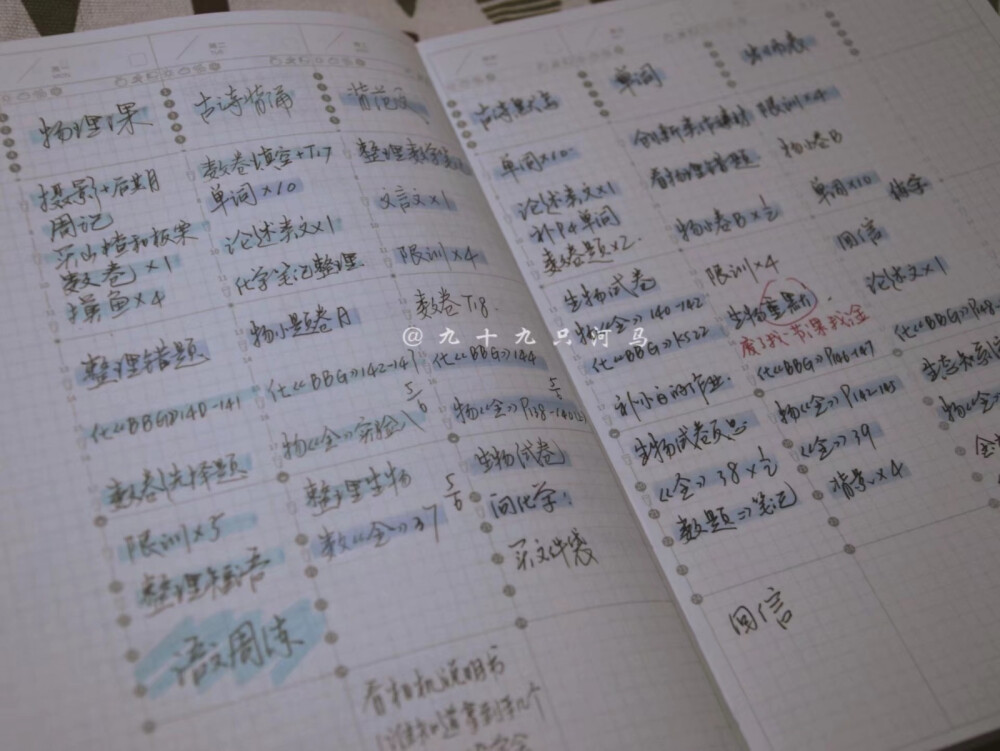 物理课
摄影+后期
周记
买山楂和板栗
数卷×1
摸鱼×4
整理错题
化《BBG》140-141
数卷选择题
限训×5
整理
语文周练
古诗背诵
数卷填空+T17
单词×10
论述类文×1
化学笔记整理
物小题卷A
化《BBG》142-147
5/6
物《金》实验八
整理生物
5/6
数《金》37
背范文
整理数学
文言文×1
限训×4
数卷T18
化《BBG》144
5/6
物《金》P138-140
生物试卷
问化学!
买文件袋
看相机说明书
谁知道拿到手几个
古诗默写
单词×10
论述类文×1
补P4单词
数卷题×2
生物试卷
物《金》140-142
化《BBG》KS22
补小白的作业
生物试卷
《金》38×1/2
数题⇒笔记
回信
单词
看物理错题
物小卷B×1/2
限训×4
生物
废了我一节课我
化《BBG》P146-147
物《金》P142-145
《金》39
背景×4
限训×4
物小卷B
单词×10
回信
论述文×1
化《BBG》P148
物《金》
@九十九只河马